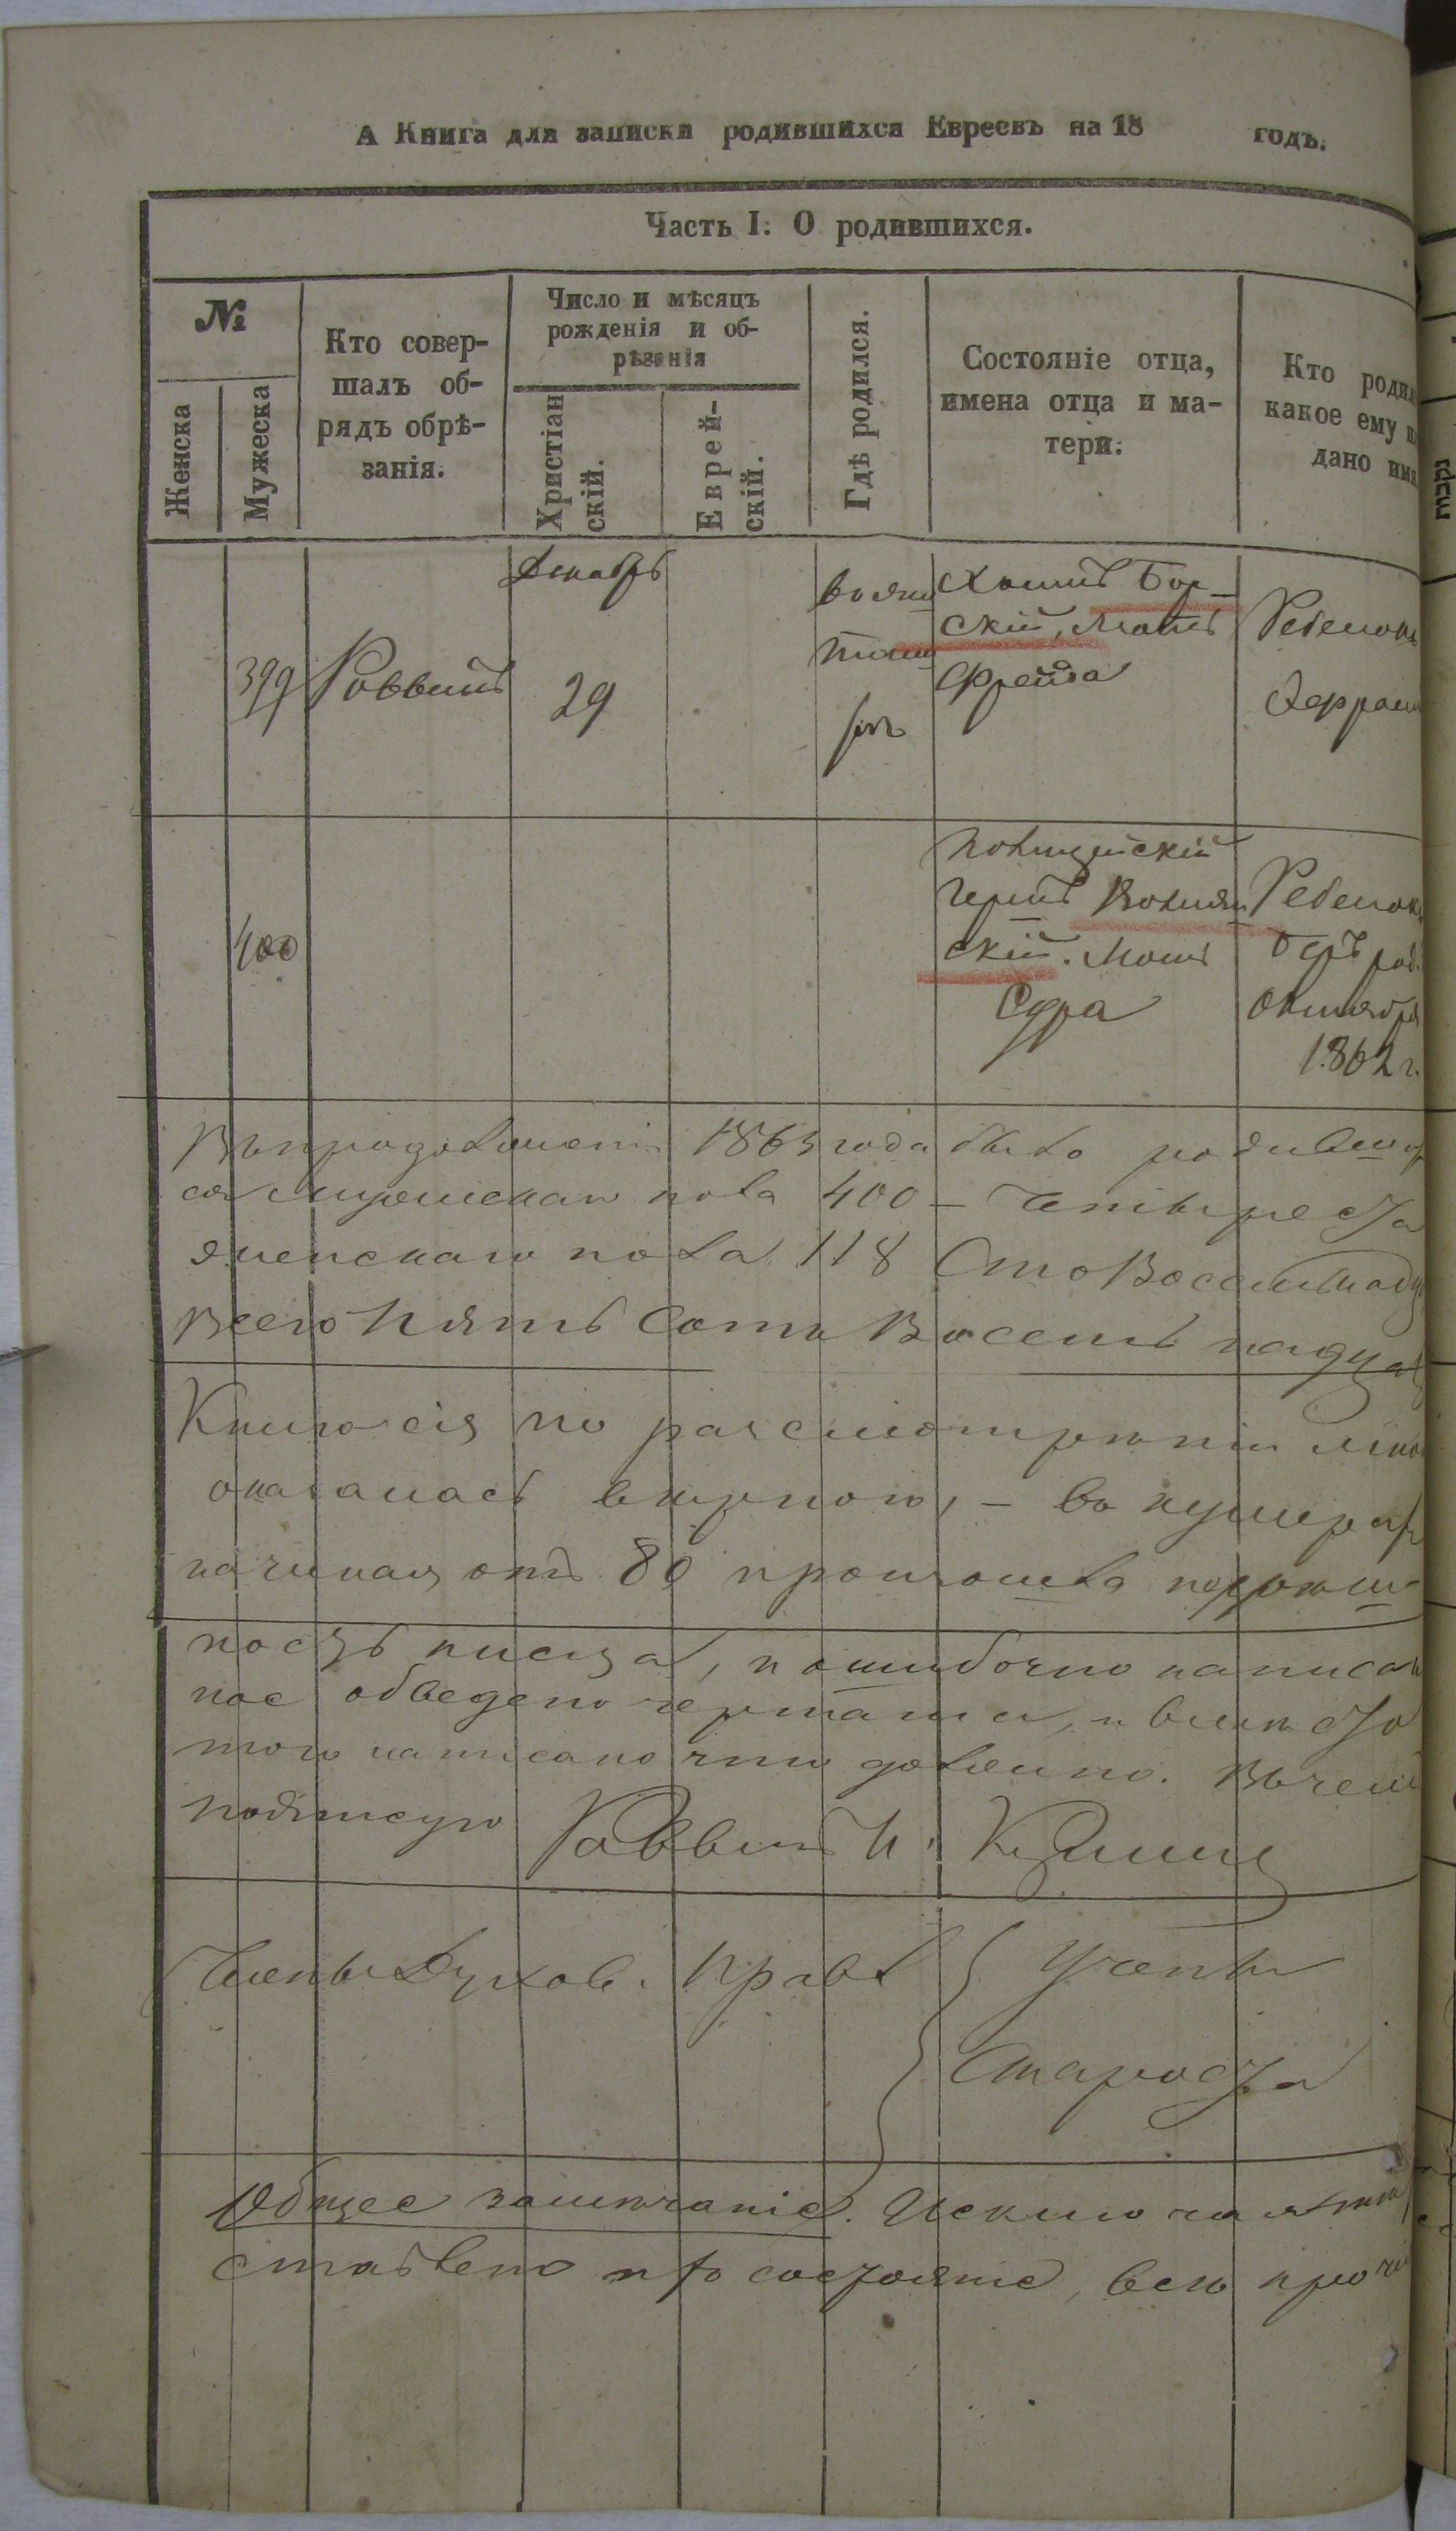 А Книга для записки родившихся Евреевъ на 18 годъ.
Часть I: О родившихся.
№
Женска
Мужеска
Кто совер-
шалъ об-
рядъ обрѣ-
занія.
Число и мѣсяцъ
рожденія и об-
рѣзанія
Христіан
скій.
Еврей-
скій.
Гдѣ родился.
Состояніе отца,
имена отца и ма-
тери:
Кто родил
какое ему и
дано имя
Декабрь
399
Раввинъ
29
Бор-
скій, Мать
Фрейда
Ребенокъ
400
Полицейскій
скій. Мать
Сура
Ребенокъ
Беръ род.
Октября
1862 г.
Въ продолженіи года было родивших
ся мужескаго пола 400 – Четыреста
женскаго пола 118 Сто Восемнадц
Всего Пять сотъ Восемьнадцать
Книга сія по разсмотреніи мною
оказалась верною, – въ нумерахъ
начиная отъ 80 произошла погреш-
ность писца, и ошибочно написан
ное обведено чертами, и вместо
того написано что должно. Въ чемъ
подписую Раввинъ
Члены Духов. Правл
Ученый
Староста
Общее замечаніе.
состояніе, всего проч